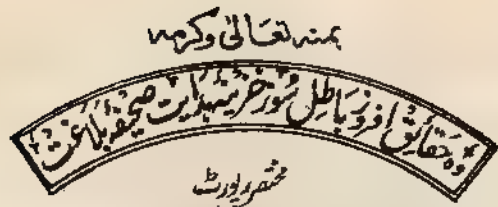 بمنہ تعالیٰ وکرمہ
وہ حقائق افروز باطل سوز خزینۂ ہدایت صحیفۂ بلاغت
مختصر رپورٹ